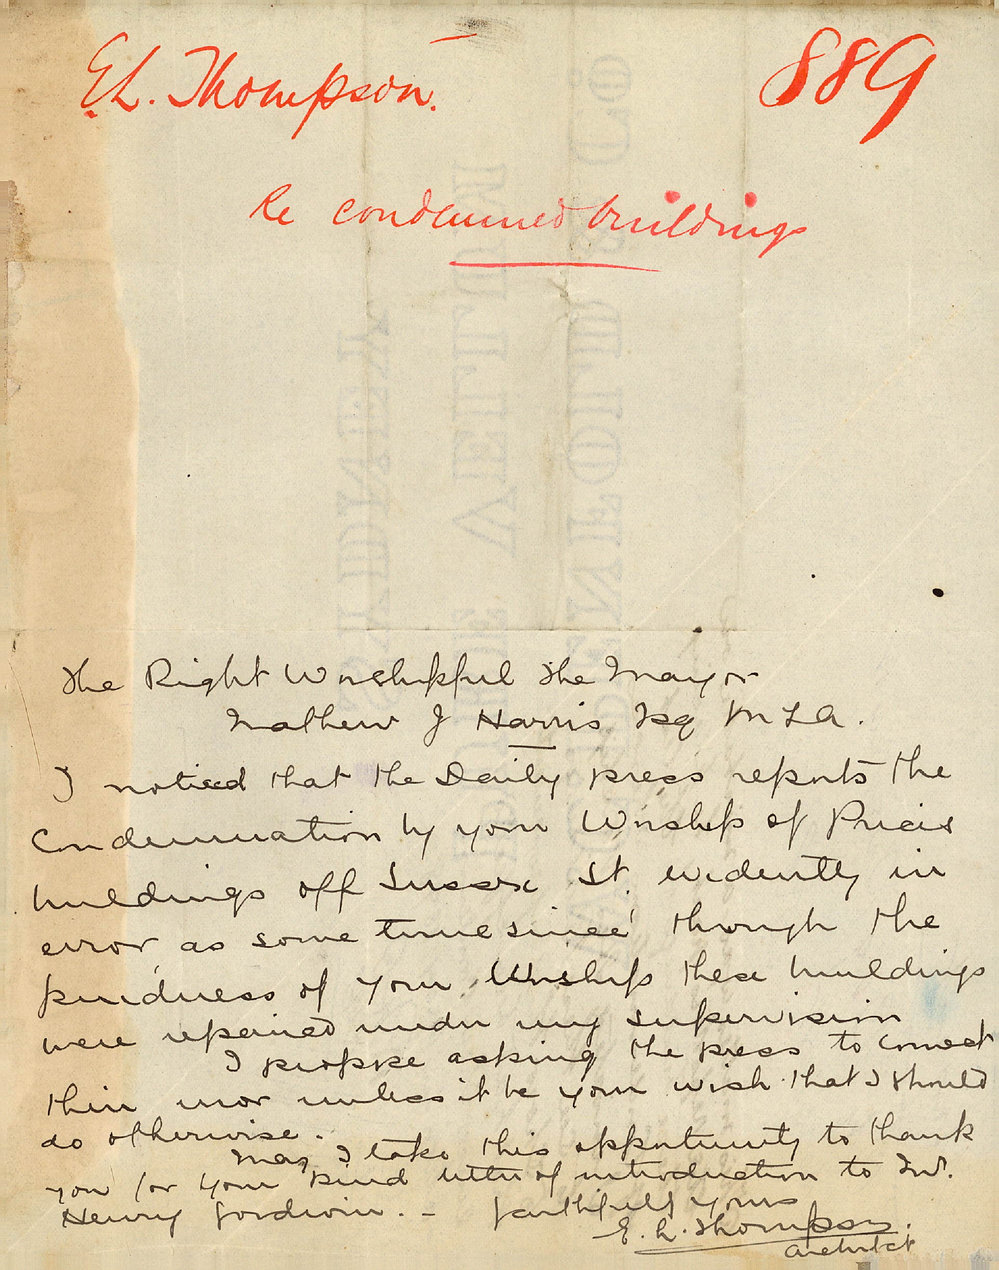 E.L. Thompson.
889
Re condemned buildings
The Right Worshipful The Mayor
Mathew J Harris Esq M L A.
I noticed that the Daily press reports the
Condemnation by your Worship of Price's
buildings off Sussex St. evidently in
error, as some time since through the
kindness of your Worship these buildings
were repaired under my supervision
I propose asking the press to correct
their error unless it be your wish that I should
do otherwise.
May I take this opportunity to thank
you for your kind letter of introduction to Mr.
Henry Goodwin. -
faithfully yours
E. L. Thompson.
Architect